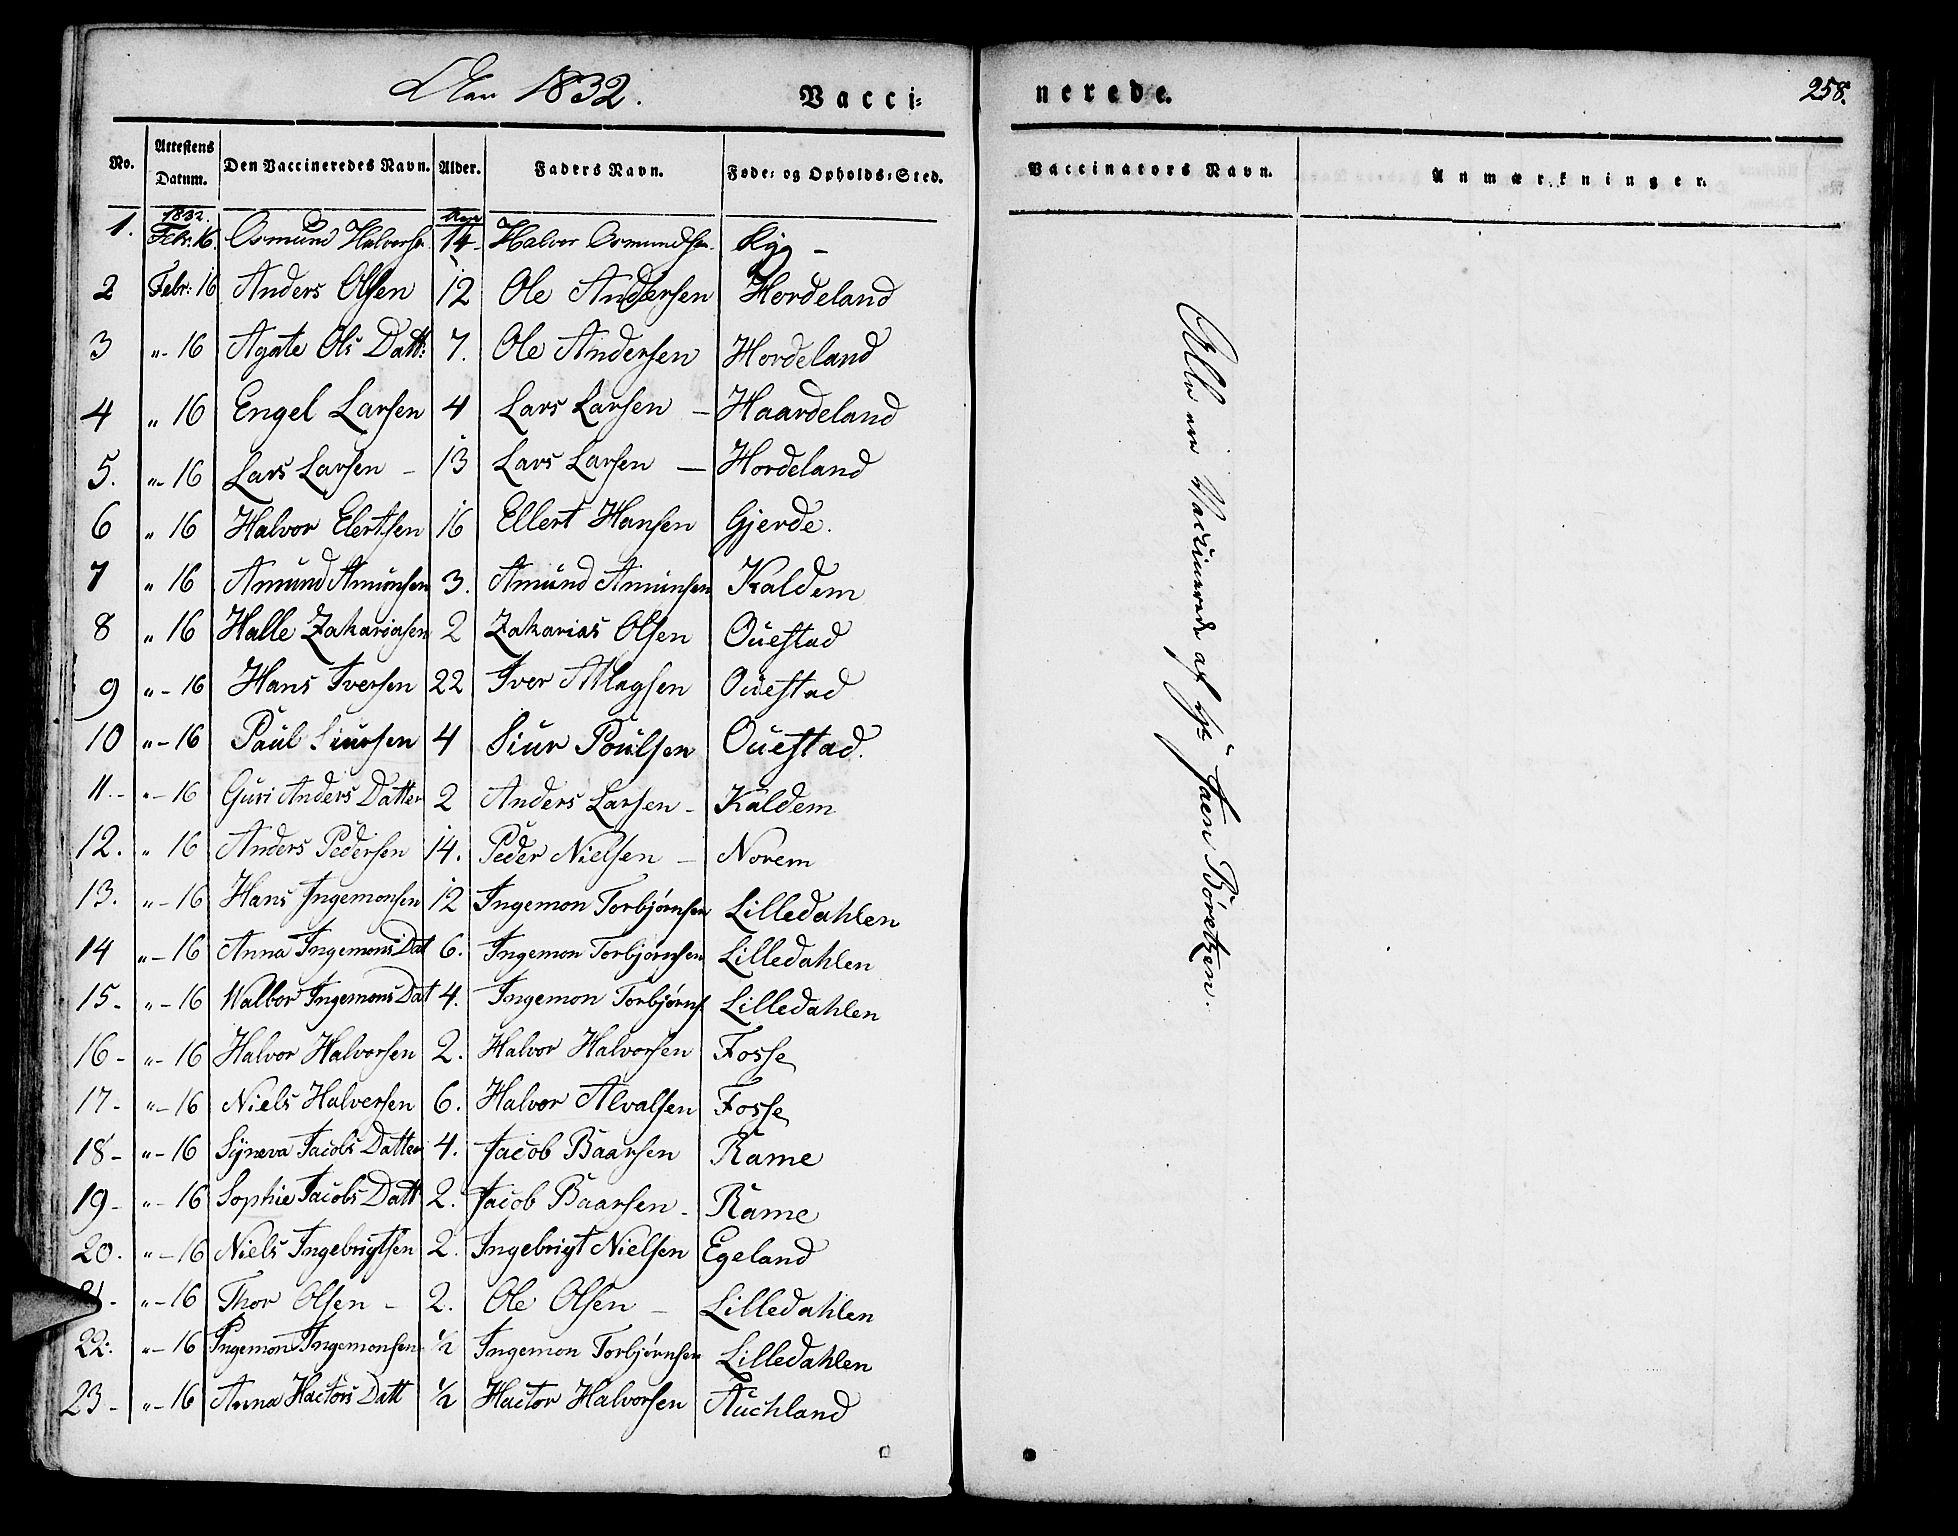 Aar 1832. Vaccinerede. 258.
No. Attestens Datum. Den Vaccineredes Navn. Alder. Faders Navn. Føde- og Opholds-Sted. Vaccinators Navn. Anmærkninger.
1. 1832. Febr. 16. Osmund Halvors. Aar 14 Halvor Osmundsen
2 Febr: 16 Anders Olsen 12 Ole Andersen Hordeland
3 " 16 Agate Ols Datt: 7. Ole Andersen Hordeland
4 " 16 Engel Larsen 4 Lars Larsen – Haardeland
5. " 16 Lars Larsen – 13 Lars Larsen – Hordeland
6 " 16 Halvor Elertsen 16 Ellert Hansen Gjerde.
7 " 16 Amund Amunsen 3. Amund Amunsen Kaldem
8 " 16 Halle Zakariasen 2 Zakarias Olsen Ouestad
9 " – 16 Hans Iversen 22 Iver Magsen Ouestad
10 " – 16 Paul Siursen 4 Siur Poulsen Ouestad.
11. – " – 16 Guri Anders Datter 2 Anders Larsen – Kaldem
12. " 16 Anders Pedersen 14. Peder Nielsen – Norem
13. " – 16 Hans Ingemonsen 12 Ingemon Torbjørnsen Lilledahlen
14 " – 16 Anna Ingemons Dat 6. Ingemon Torbjørnsen Lilledahlen
15 – " – 16 Walbor Ingemons Dat 4. Ingemon Torbjørns. Lilledahlen
16 – " – 16 Halvor Halvorsen 2. Halvor Halvorsen Fosse
17 – " – 16 Niels Halversen 6. Halvor Alvalsen Fosse
18 – " – 16 Syneva Jacobs Datter 4. Jacob Baarsen Rame
19 – " – 16 Sophie Jacobs Datt 2. Jacob Baarsen – Rame
20. " – 16 Niels Ingebrigtsen 2. Ingebrigt Nielsen Egeland
21 – " – 16 Thor Olsen – 2. Ole Olsen – Lilledahlen
22: " – 16 Ingemon Ingemonsen ½ Ingemon Torbjørnsen Lilledahlen
23 – " – 16 Anna Hactors Datt ½ Hactor Halvorsen Auchland
Alle ere Vaccinerede af Hr Faen Børetzen.